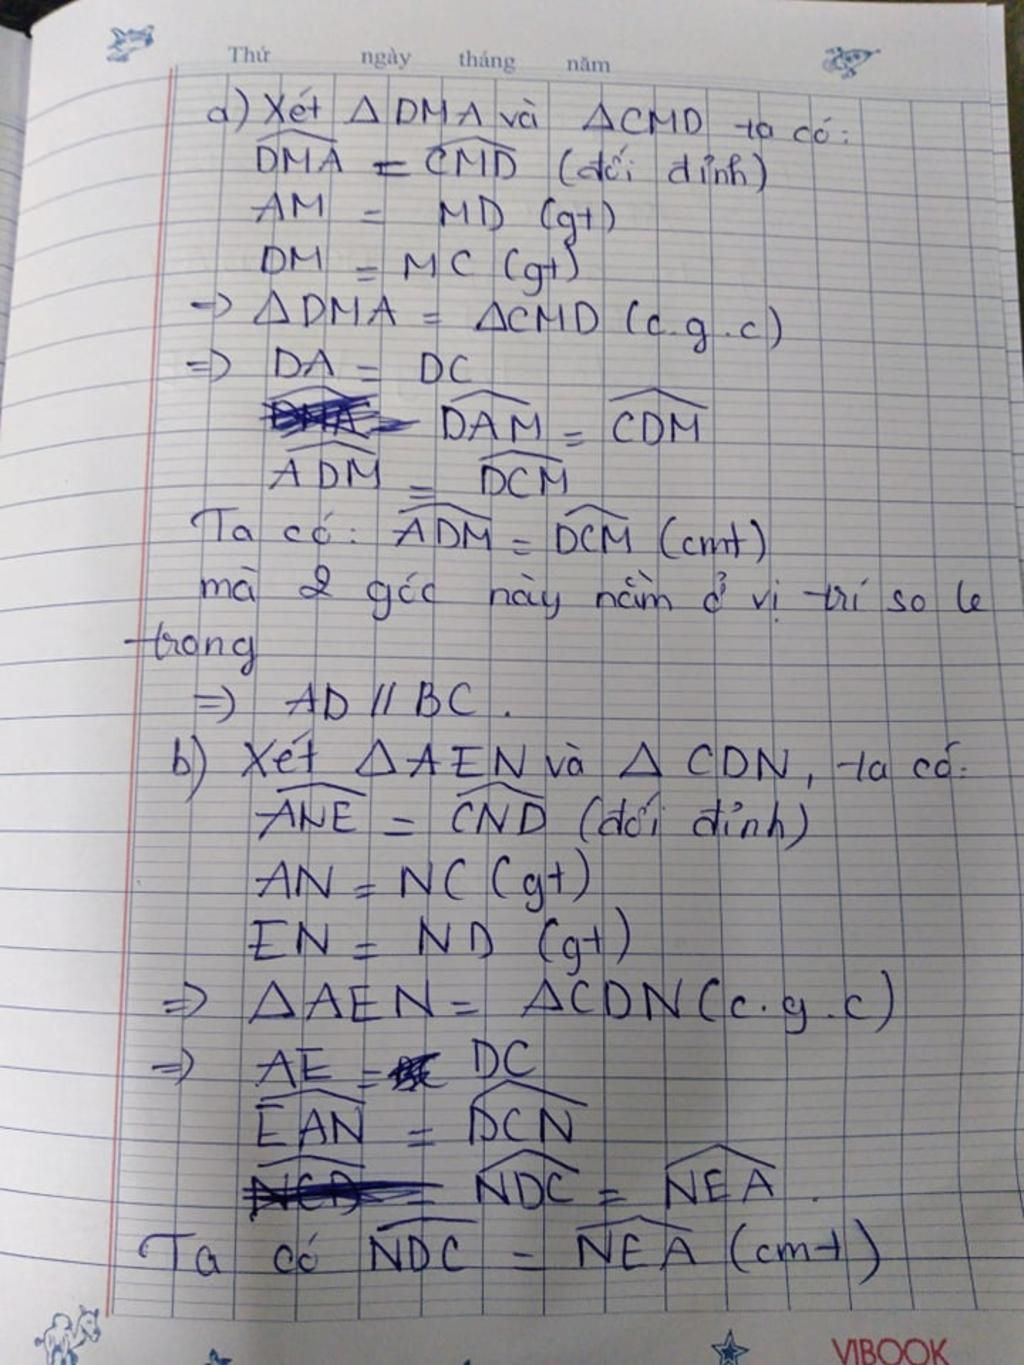 Thứ ngày tháng năm
a) Xét ΔDMA và ΔCMD ta có:
DMA = CMD (đối đỉnh)
AM = MD (gt)
DM = MC (gt)
=> ΔDMA = ΔCMD (c.g.c)
=> DA = DC
DAM = CDM
ADM = DCM
Ta có: ADM = DCM (cmt)
mà 2 góc này nằm ở vị trí so le
trong
=> AD // BC.
b) Xét ΔAEN và ΔCDN, ta có:
ANE = CND (đối đỉnh)
AN = NC (gt)
EN = ND (gt)
=> ΔAEN = ΔCDN (c.g.c)
=> AE = DC
EAN = DCN
NDC = NEA.
Ta có NDC = NEA (cmt)
VIBOOK